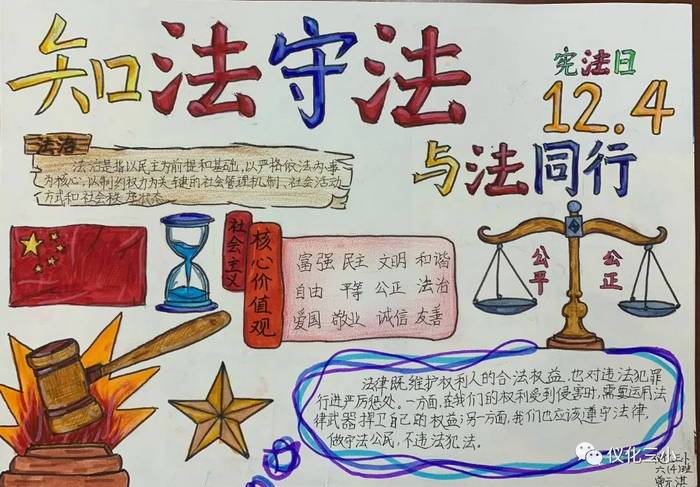 知法守法
宪法日
12.4
与法同行
法治
法治是指以民主为前提和基础,以严格依法办事
为核心,以制约权力为关键的社会管理机制、社会活动
方式和社会秩序状态
社会主义
核心价值观
富强 民主 文明 和谐
自由 平等 公正 法治
爱国 敬业 诚信 友善
公平
公正
法律既维护权利人的合法权益,也对违法犯罪
行进严厉惩处。一方面,在我们的权利受到侵害时,需要运用法
律武器捍卫自己的权益;另一方面,我们也应该遵守法律,
做守法公民,不违法犯法。
仪化三小
六(4)班